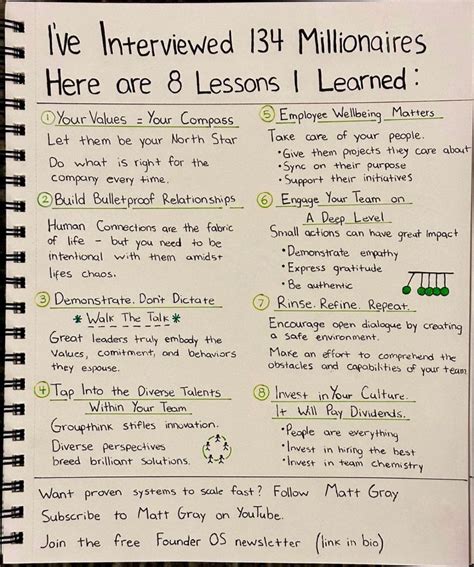 I've Interviewed 134 Millionaires
Here are 8 Lessons I Learned:
① Your Values = Your Compass
Let them be your North Star
Do what is right for the
company every time.
② Build Bulletproof Relationships
Human Connections are the fabric
of life - but you need to be
intentional with them amidst
lifes chaos.
③ Demonstrate. Don't Dictate
* Walk The Talk *
Great leaders truly embody the
Values, comitment, and behaviors
they espouse.
④ Tap Into the Diverse Talents
Within Your Team
Groupthink stifles innovation.
Diverse perspectives
breed brilliant solutions.
⑤ Employee Wellbeing Matters
Take care of your people.
• Give them projects they care about
• Sync on their purpose
• Support their initiatives
⑥ Engage Your Team on
A Deep Level
Small actions can have great impact
• Demonstrate empathy
• Express gratitude
• Be authentic
⑦ Rinse. Refine. Repeat.
Encourage open dialogue by creating
a safe environment.
Make an effort to comprehend the
obstacles and capabilities of your team
⑧ Invest in Your Culture.
It Will Pay Dividends.
• People are everything
• Invest in hiring the best
• Invest in team chemistry
Want proven systems to scale fast? Follow Matt Gray
Subscribe to Matt Gray on YouTube.
Join the free Founder OS newsletter (link in bio)